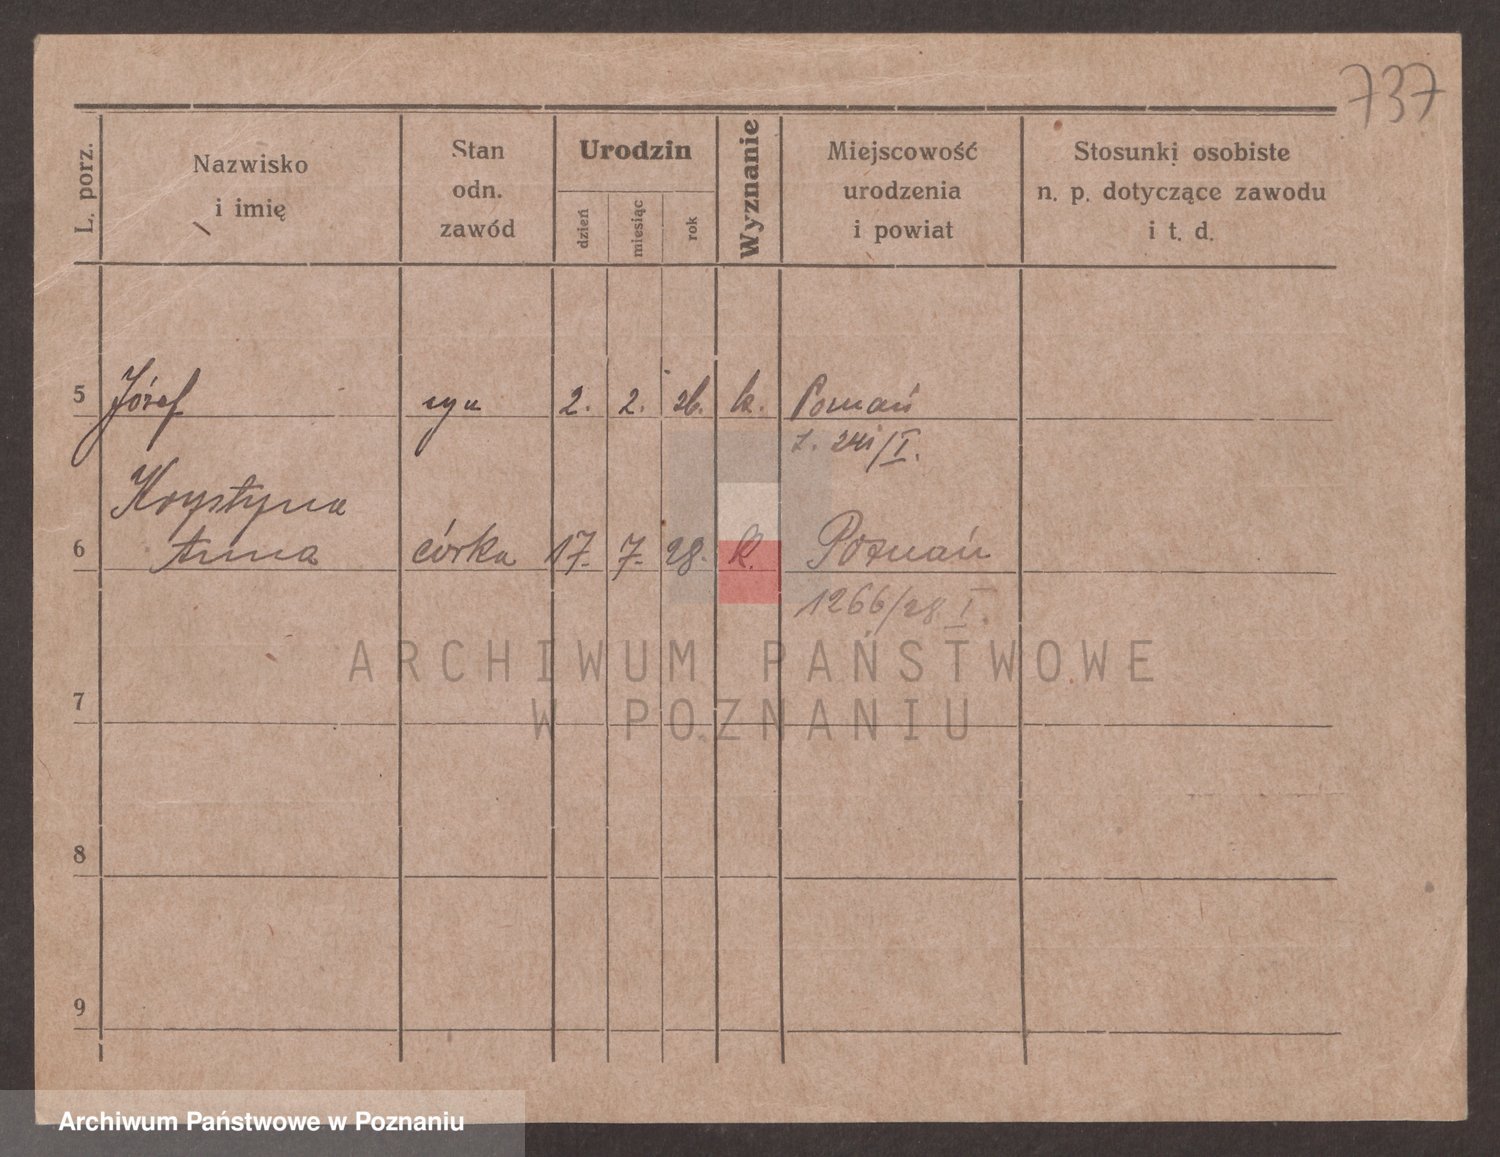 737
L. porz.
Nazwisko
i imię
Stan
odn.
zawód
Urodzin
dzień
miesiąc
rok
Wyznanie
Miejscowość
urodzenia
i powiat
Stosunki osobiste
n. p. dotyczące zawodu
i t. d.
5 Józef syn 2. 2. 26. k. Poznań
/I.
Krystyna
6 Anna córka 17. 7. 28. k. Poznań
1266/28 I.
ARCHIWUM PAŃSTWOWE
W POZNANIU
7
8
9
Archiwum Państwowe w Poznaniu